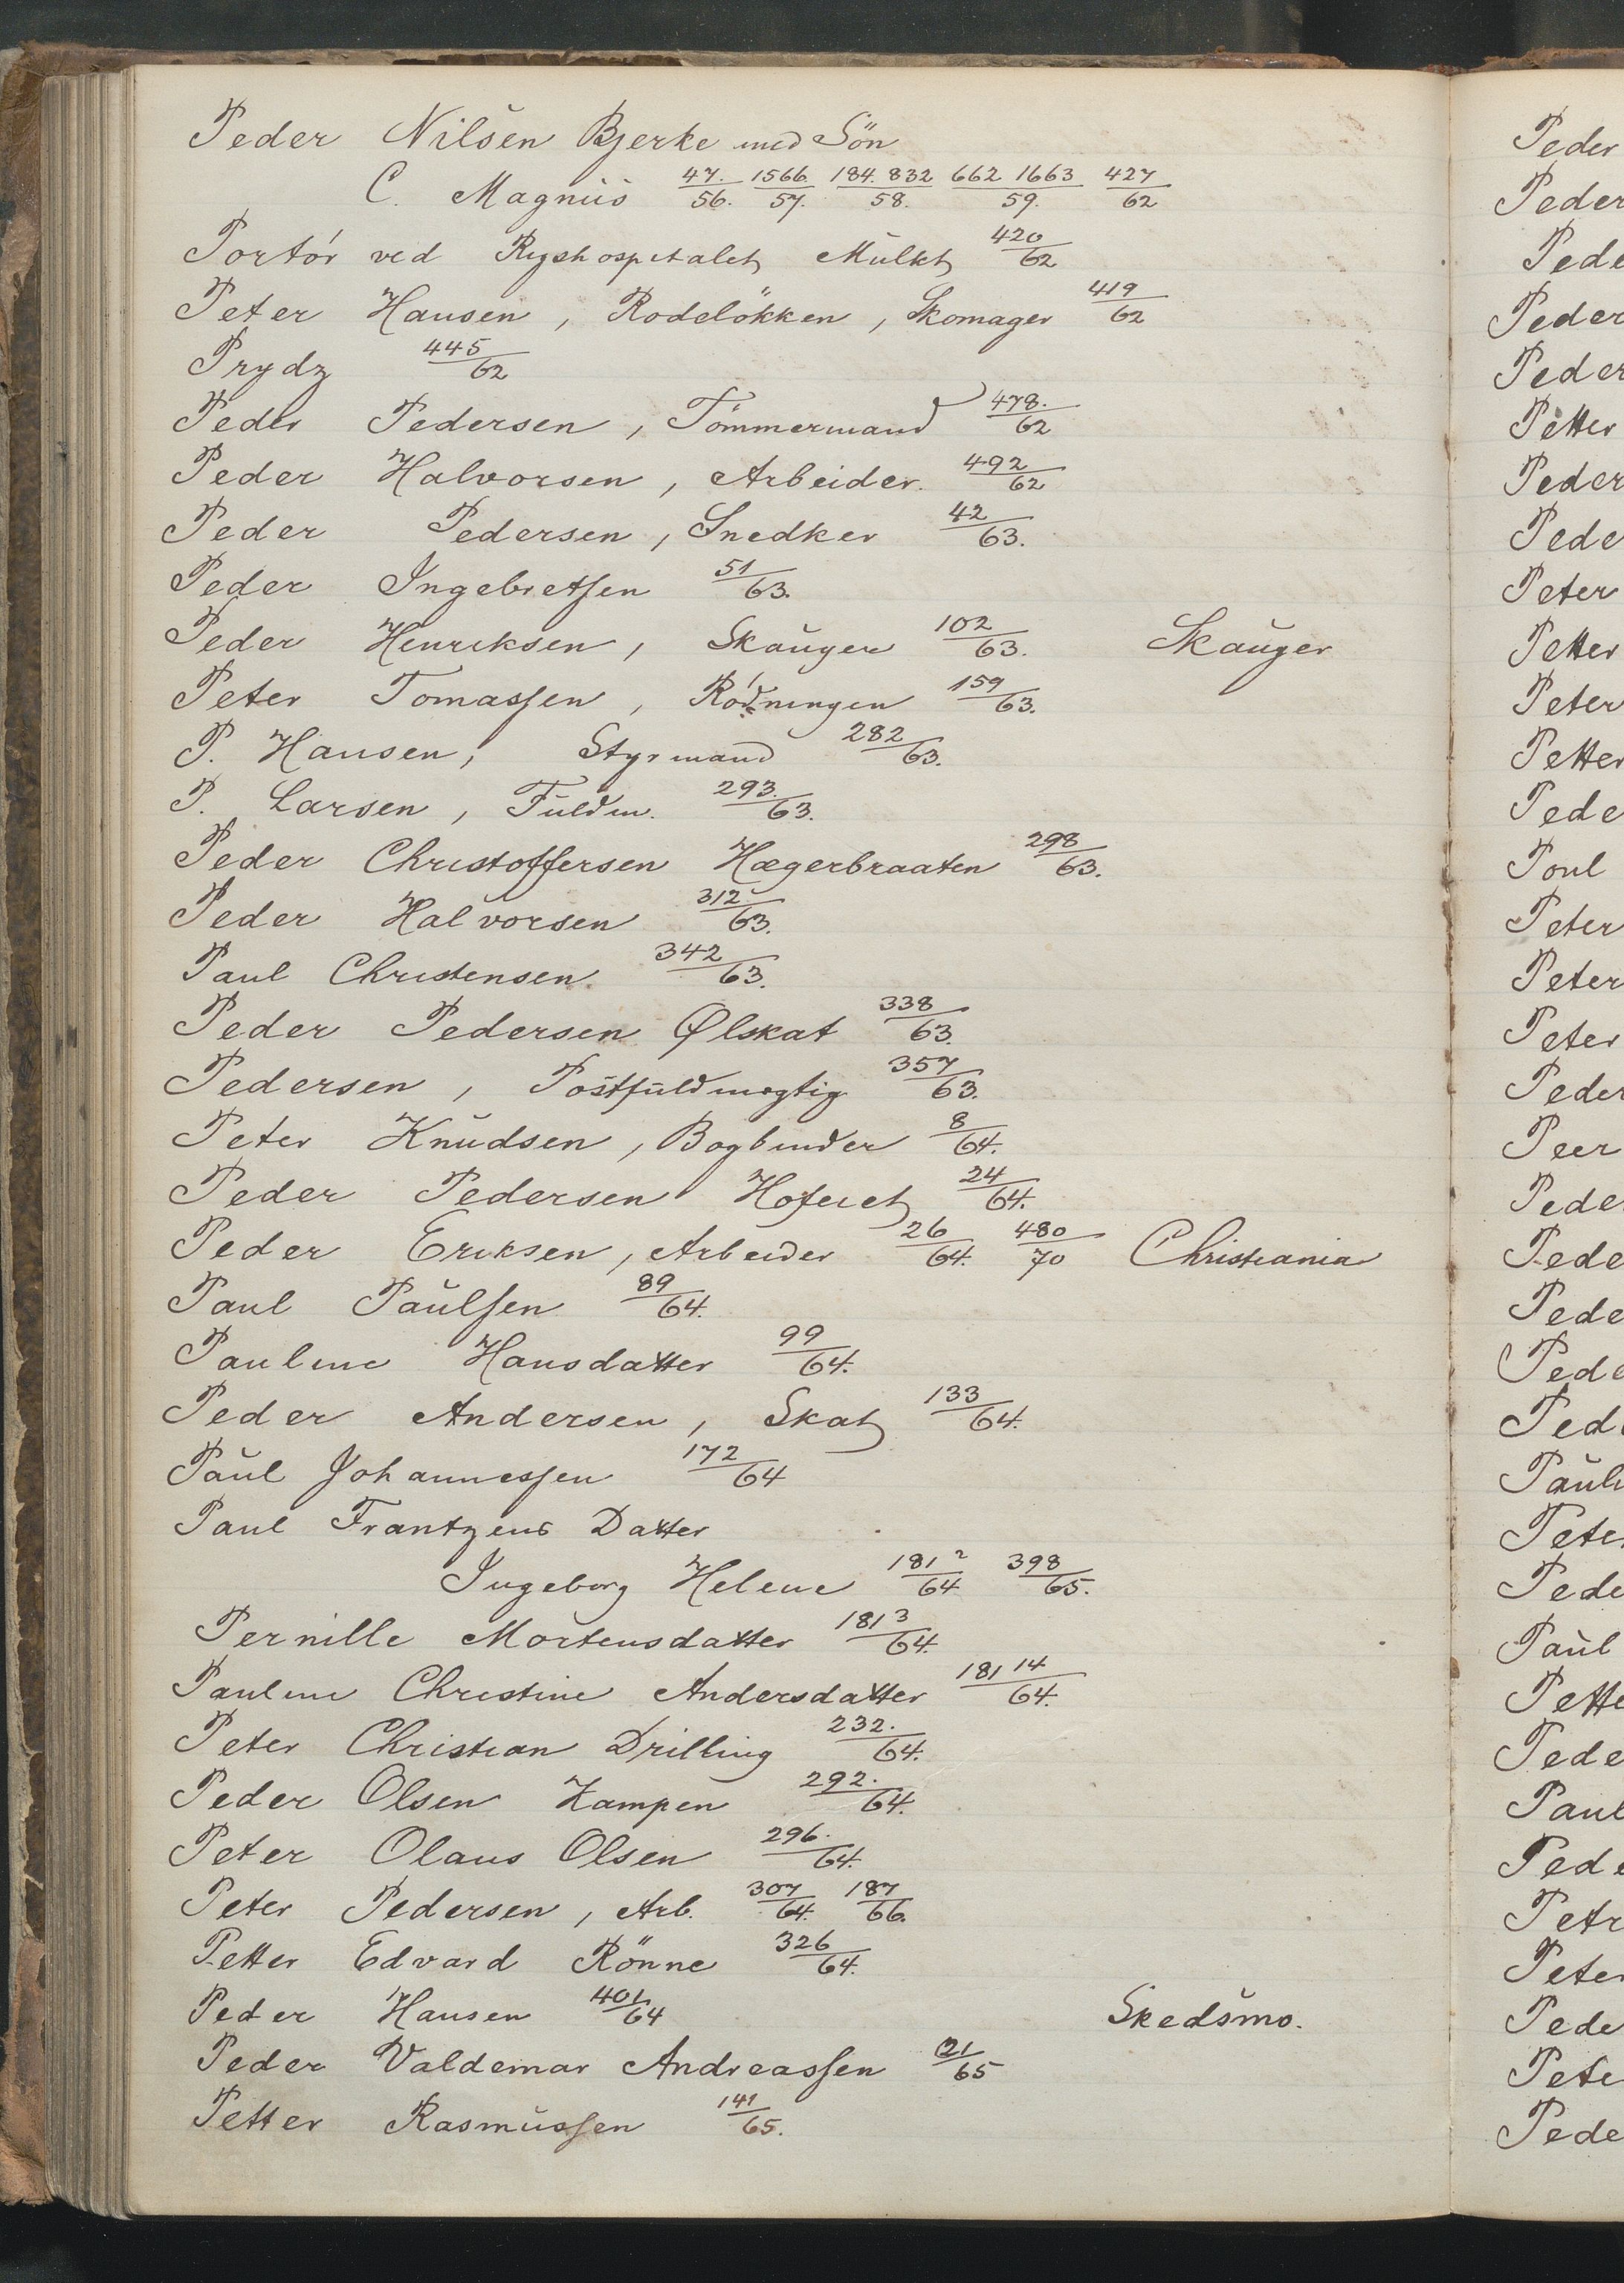 Peder Nilsen Bjerke med Sön
C. Magnus 47./56. 1566./57. 184. 832/58. 662 1663/59. 427/62
Portór ved Rigshospitalet, Mulkt, 420/62
Peter Hansen, Rodelökken, Skomager 419/62
Prydz 445/62
Peder Pedersen, Tömmermand 478./62
Peder Halvorsen, Arbeider. 492/62
Peder Pedersen, Snedker 42/63.
Peder Ingebretsen 51/63.
Peder Henriksen, Skauger 102/63. Skauger
Peter Tomassen, Ródningen 159/63.
P. Hansen, Styrmand 282/63.
P. Larsen, Fuldm. 293./63.
Peder Christoffersen Hægerbraaten 298/63.
Peder Halvorsen 312/63.
Paul Christensen 342/63.
Peder Pedersen Ølskat 338/63.
Pedersen, Postfuldmægtig 357/63.
Peter Knudsen, Bogbinder 8/64.
Peder Pedersen 24/64.
Peder Eriksen, Arbeider 26/64. 480/70 Christiania
Paul Paulsen 89/64.
Pauline Hansdatter 99/64.
Peder Andersen, Skat, 133/64.
Paul Johannessen 172/64
Paul Frantzens Datter
Ingeborg Helene 181 2/64 398/65.
Pernille Mortensdatter 181 3/64.
Pauline Christine Andersdatter 181 14/64.
Peter Christian Drilling 232./64.
Peder Olsen Kampen 292./64.
Peter Olaus Olsen 296./64.
Peter Pedersen, Arb. 307/64. 187/66.
Petter Edvard Rönne 326/64.
Peder Hansen 401/64 Skedsmo.
Peder Valdemar Andreassen 21/65
Petter Rasmussen 141/65.
Peder
Peder
Pede
Peder
Peder
Petter
Peder
Pede
Peter
Petter
Peter
Petter
Pede
Poul
Peter
Peter
Peter
Peder
Peer
Pede
Pede
Pede
Pede
Ped
Paul
Pete
Pede
Paul
Pette
Pede
Paul
Pede
Petr
Peter
Pede
Pete
Pede